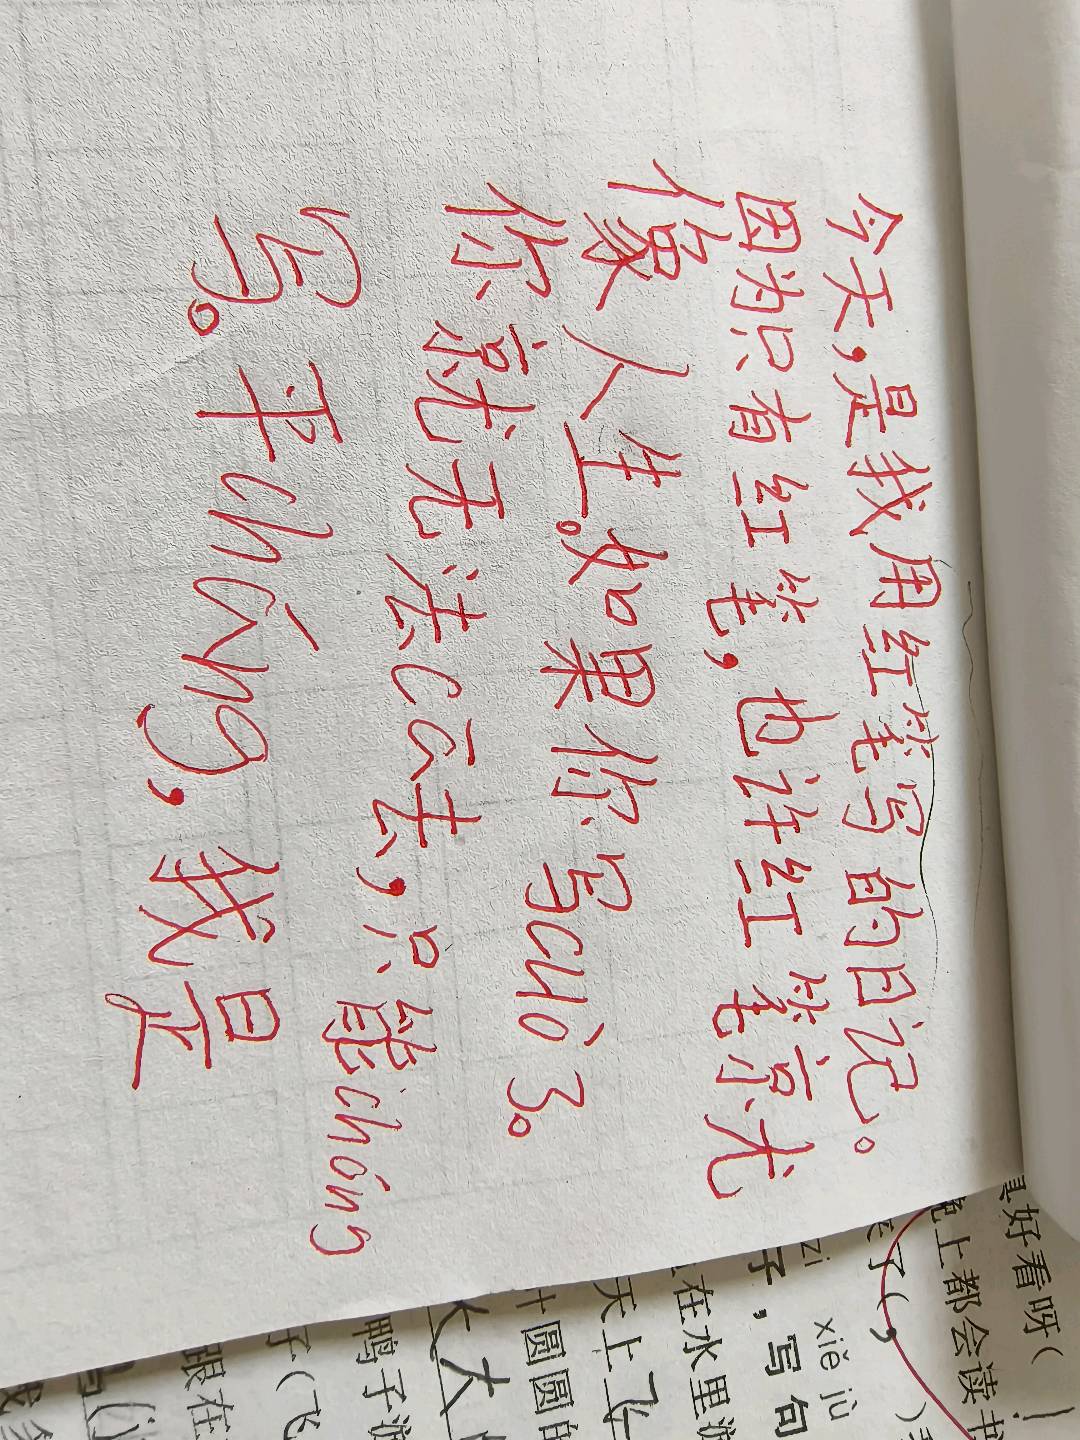 今天,是我用红笔写的日记。
因为只有红笔,也许红笔就
像人生。如果你写cuò了。
你就无法cā去,只能chóng
写。平cháng,我是
好看呀(
晚上都会读书
了(
zi xiě jù
子,写句
在水里游
天上飞
圆圆的
大
鸭子游
子(飞
跟在